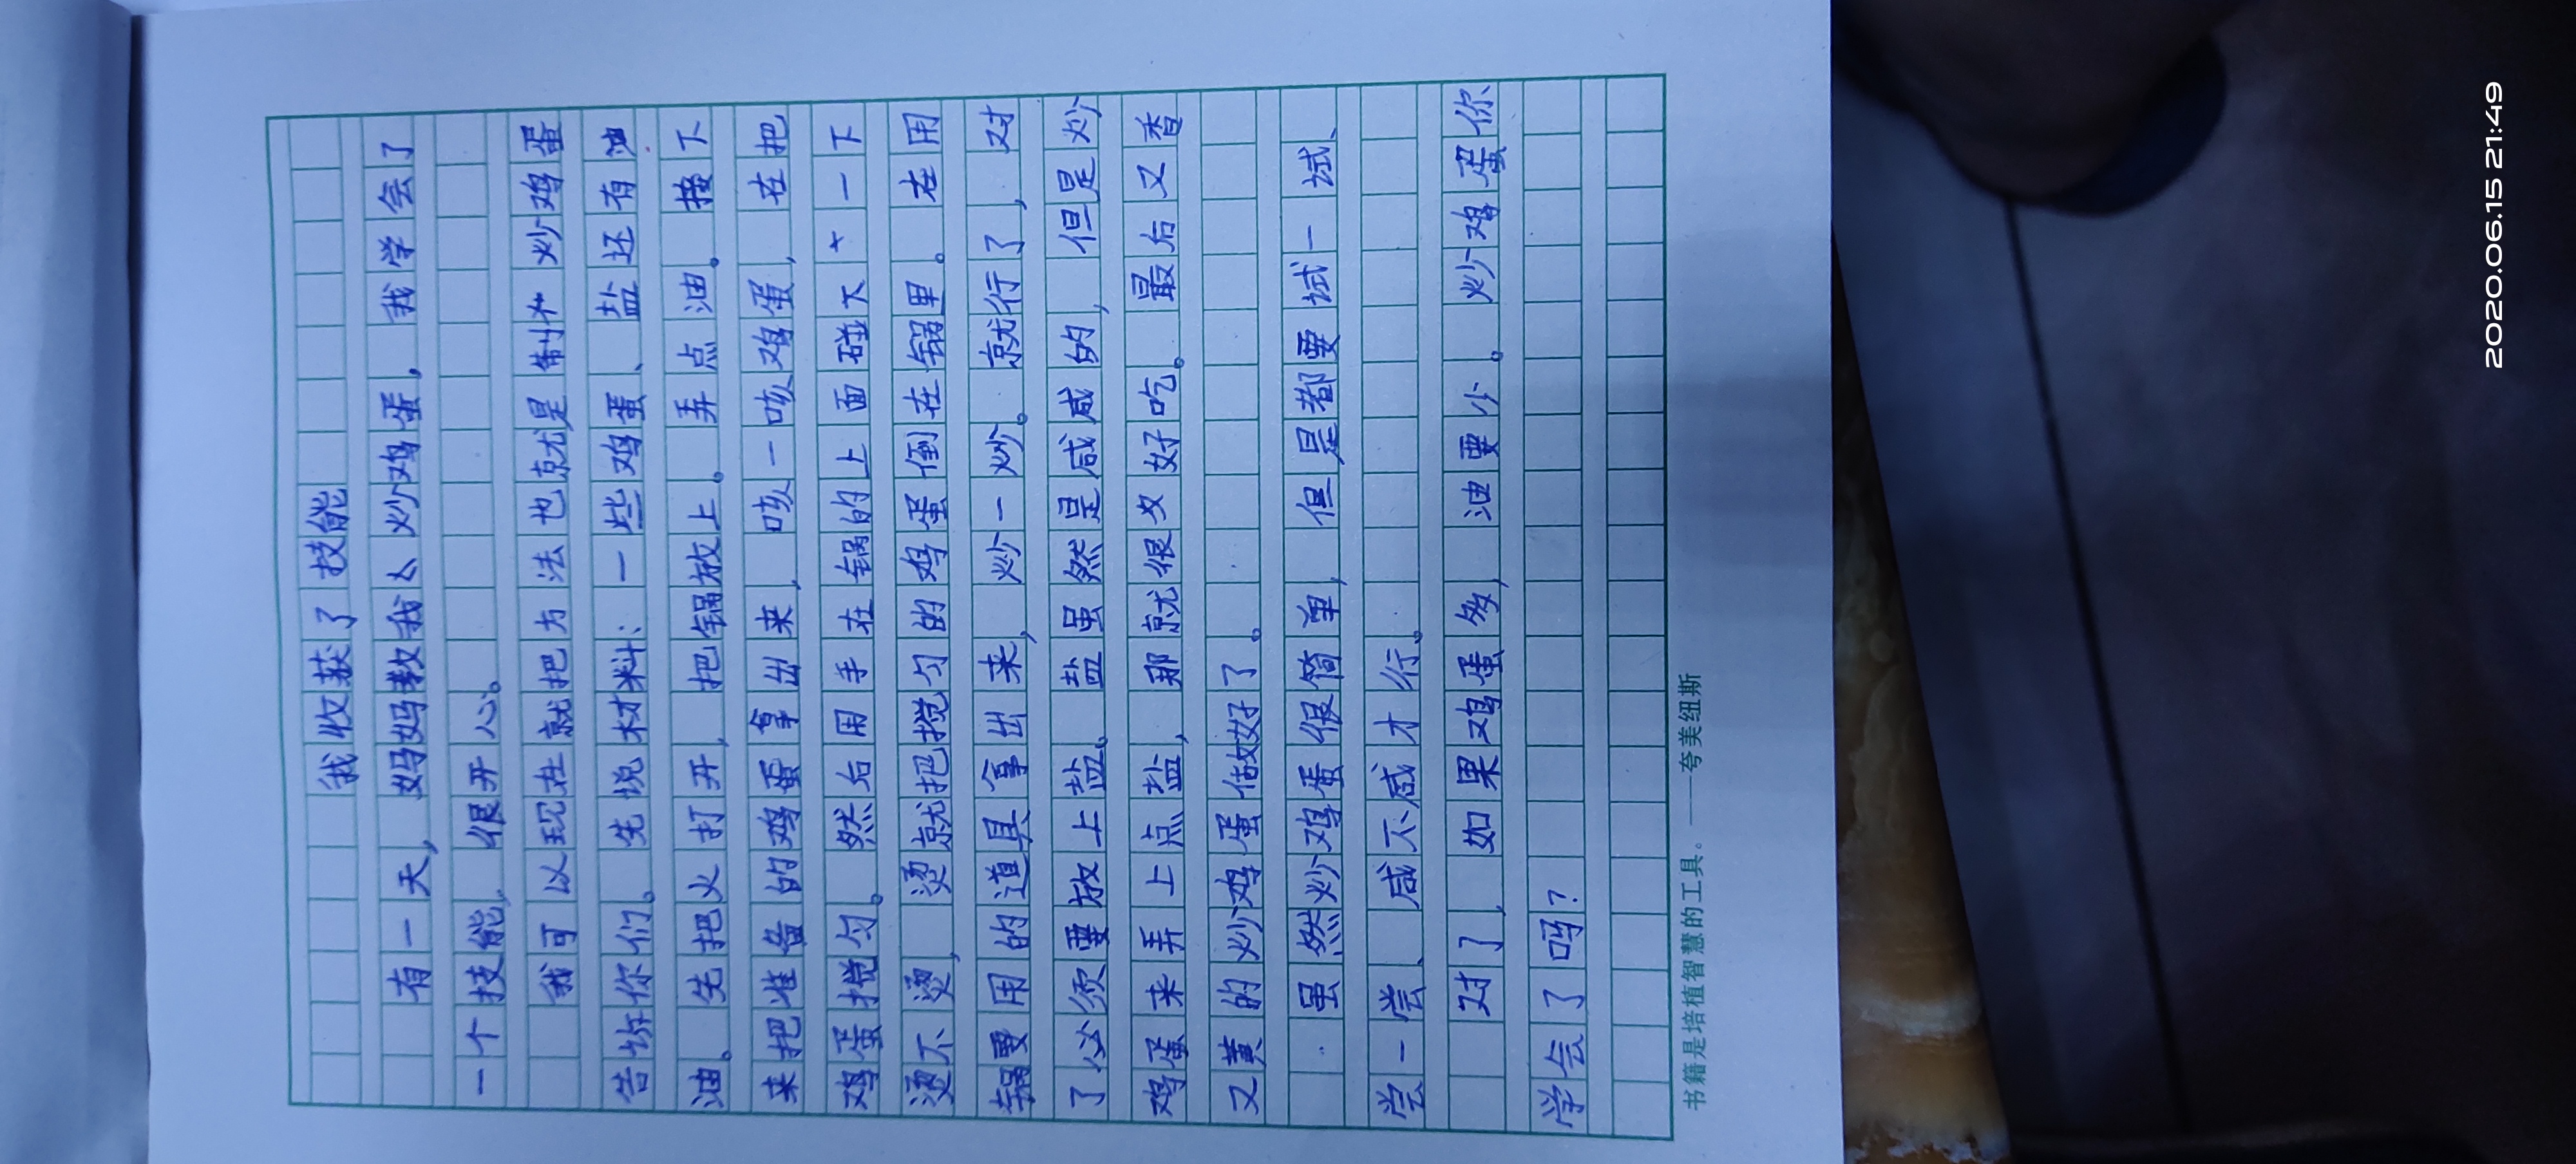 我收获了技能
有一天，妈妈教我炒鸡蛋，我学会了
一个技能，很开心。
我可以现在就把方法也就是制作炒鸡蛋
告诉你们。先说材料：一些鸡蛋、盐还有油
油。先把火打开，把锅放上。弄点油。接下
来把准备的鸡蛋拿出来，咳一咳鸡蛋，在把
鸡蛋搅匀。然后用手在锅的上面碰一下
烫不烫，烫就把搅匀的鸡蛋倒在锅里。在用
锅要用的道具拿出来，炒一炒。就行了，对
了必须要放上盐。盐虽然是咸咸的，但是炒
鸡蛋来弄上点盐，那就很好吃。最后又香
又黄的炒鸡蛋做好了。
虽然炒鸡蛋很简单，但是都要试一试、
尝一尝、咸不咸才行。
对了，如果鸡蛋多，油要少。炒鸡蛋你
学会了吗？
书籍是培植智慧的工具。——夸美纽斯
2020.06.15 21:49